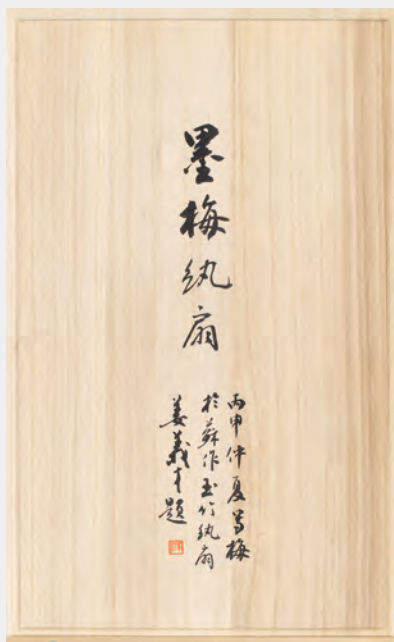 墨梅紈扇
丙申仲夏寫梅
於蘇作玉竹紈扇
姜義才題